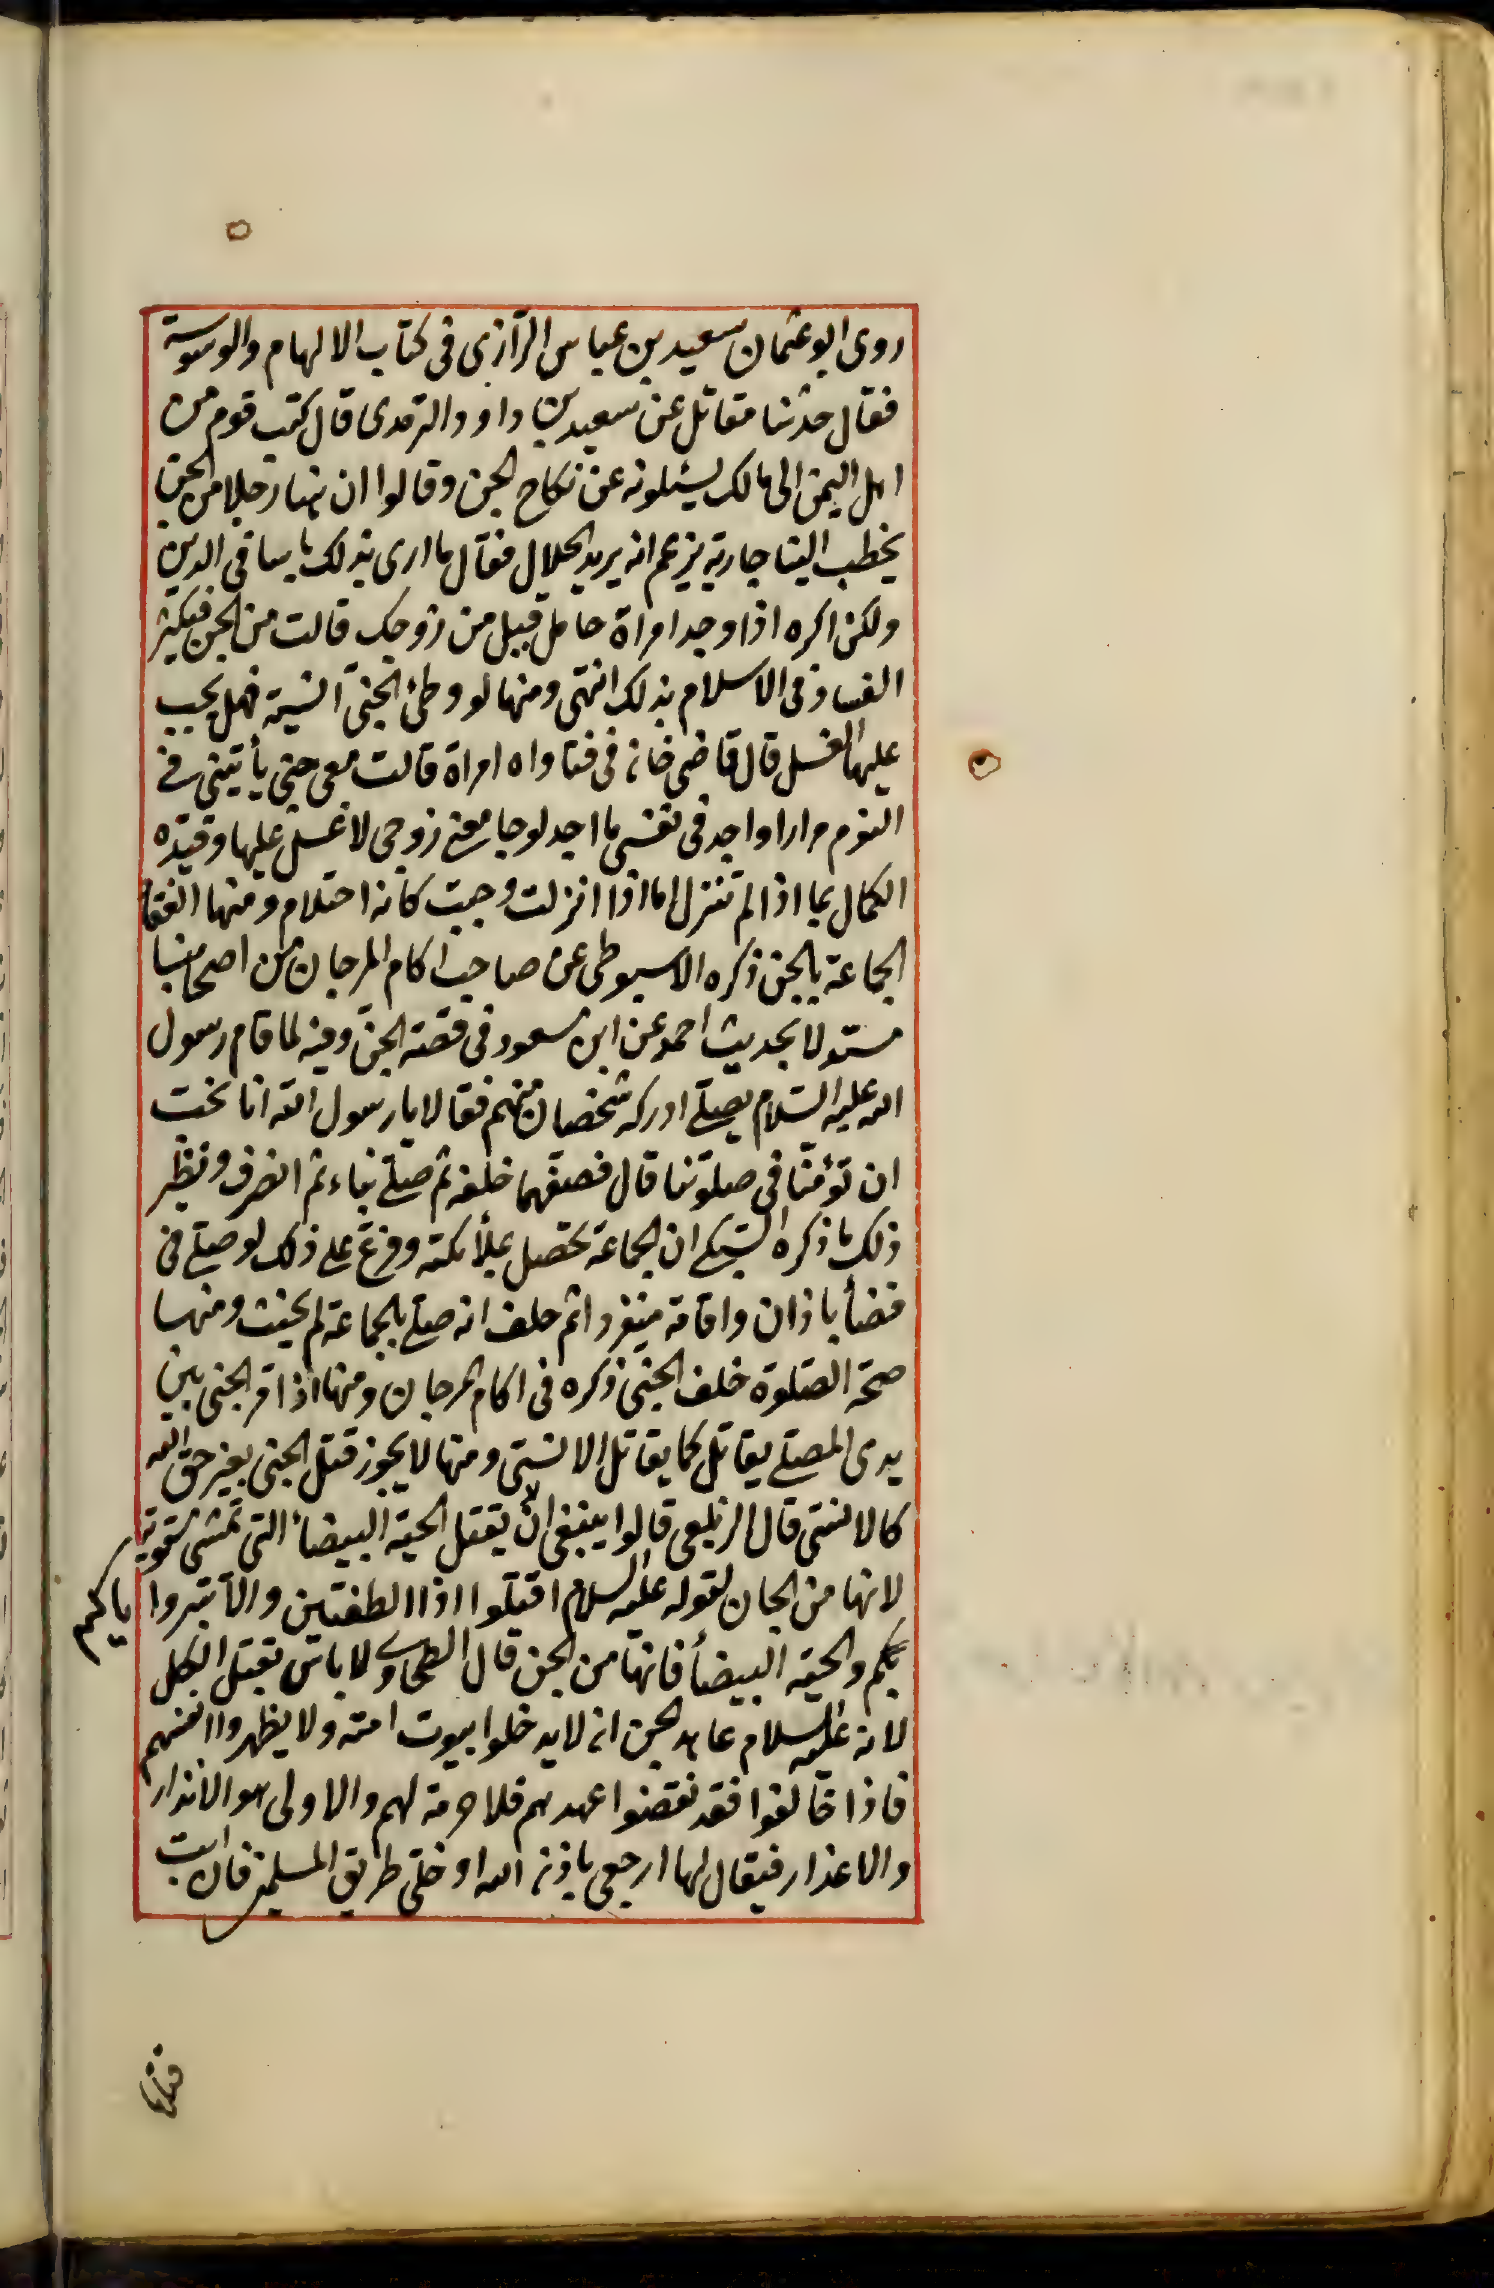 روى ابو عثمان سعيد بن عباس الرازى فى كتاب الالهام والوسوسة
فقال حدثنا مقاتل عن سعيد بن داود الزبدى قال كتب قوم من
اهل اليمن الى مالك يسئلونه عن نكاح الجن وقالوا ان ههنا رجلا من الجن
يخطب الينا جارية يزعم انه يريد الحلال فقال ما ارى بذلك باسا فى الدين
ولكن اكره اذا وجد امراة حامل قيل من زوجك قالت من الجن فيكثر
الفساد فى الاسلام بذلك انتهى ومنها لو وطئ الجنى آنسية فهل يجب
عليها الغسل قال قاضى خان فى فتاواه امراة قالت معى جنى يأتينى فى
النوم مرارا واجد فى نفسى ما اجد لو جامعنى زوجى لا غسل عليها وقيّده
الكمال بما اذا لم تنزل اما اذا انزلت وجبت كأنه احتلام ومنها انعقاد
الجماعة بالجن ذكره الاسيوطى عن صاحب اكام المرجان من اصحابنا
مستدلا بحديث احمد عن ابن مسعود فى قصة الجن وفيه لما قام رسول
الله عليه السلام يصلى ادركه شخصان منهم فقالا يا رسول الله انا نحب
ان تؤمنا فى صلوتنا قال فصفهما خلفه ثم صلى بناء ثم انصرف ونظير
ذلك ما ذكره السبكى ان الجماعة تحصل بملأئكته وفرّع على ذلك لو صلى فى
فضأ باذان واقامة منفردا ثم حلف انه صلى بالجماعة لم يحنث ومنها
صحة الصلوة خلف الجنى ذكره فى اكام المرجان ومنها اذا مر الجنى بين
يدى المصلى يقاتل كما يقاتل الانسى ومنها لا يجوز قتل الجنى بغير حق الله
كالانسى قال الزيلعى قالوا ينبغى ان لا تقتل الحية البيضأ التى تمشى مستوية
لانها من الجان لقوله عليه السلام اقتلوا اذا الطفتين والآبتر وا ياكم
بكم والحية البيضأ فانها من الجن قال الطحاوى لا باس بقتل الكل
لانه عليه السلام عاهد الجن ان لا يدخلوا بيوت امته ولا يظهروا انفسهم
فاذا خالفوا فقد نقضوا عهدهم فلا حرمة لهم والاولى هو الانذار
والاعذار فيقال لها ارجعى باذن الله او خلى طريق المسلمين فان ابت